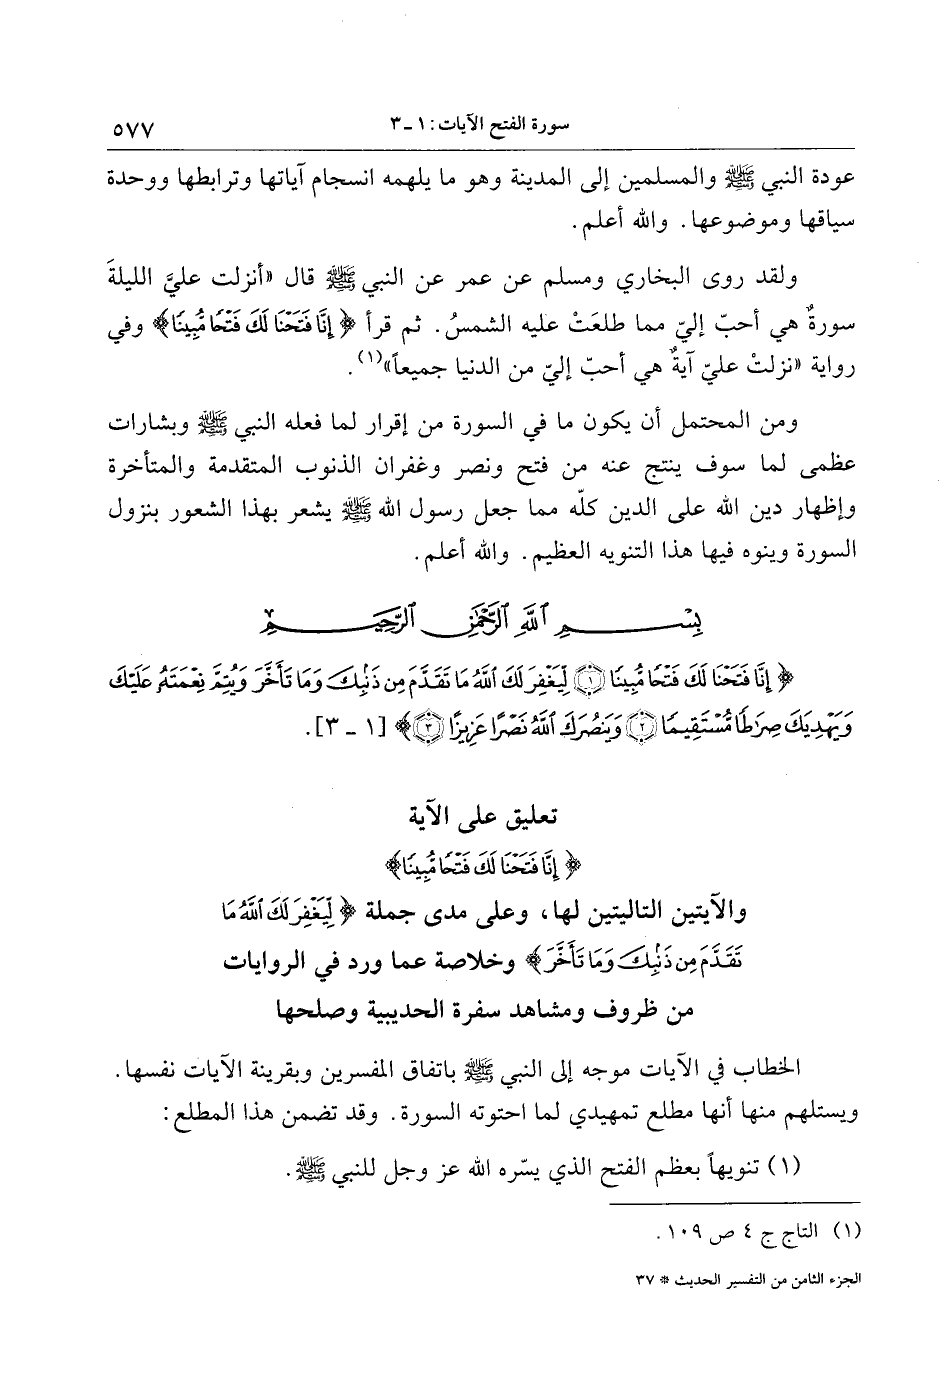 سورة الفتح الآيات: ١ ـ ٣
٥٧٧
عودة النبي ﷺ والمسلمين إلى المدينة وهو ما يلهمه انسجام آياتها وترابطها ووحدة
سياقها وموضوعها. والله أعلم.
ولقد روى البخاري ومسلم عن عمر عن النبي ﷺ قال «أنزلت عليَّ الليلةَ
سورةٌ هي أحبّ إليّ مما طلعَتْ عليه الشمسُ. ثم قرأ ﴿إِنَّا فَتَحْنَا لَكَ فَتْحًا مُّبِينًا﴾ وفي
رواية «نزلتْ عليّ آيةٌ هي أحبّ إليّ من الدنيا جميعاً»(١).
ومن المحتمل أن يكون ما في السورة من إقرار لما فعله النبي ﷺ وبشارات
عظمى لما سوف ينتج عنه من فتح ونصر وغفران الذنوب المتقدمة والمتأخرة
وإظهار دين الله على الدين كلّه مما جعل رسول الله ﷺ يشعر بهذا الشعور بنزول
السورة وينوه فيها هذا التنويه العظيم. والله أعلم.
بِسْمِ ٱللَّهِ ٱلرَّحْمَٰنِ ٱلرَّحِيمِ
﴿إِنَّا فَتَحْنَا لَكَ فَتْحًا مُّبِينًا ﴿١﴾ لِّيَغْفِرَ لَكَ ٱللَّهُ مَا تَقَدَّمَ مِن ذَنۢبِكَ وَمَا تَأَخَّرَ وَيُتِمَّ نِعْمَتَهُۥ عَلَيْكَ
وَيَهْدِيَكَ صِرَٰطًا مُّسْتَقِيمًا ﴿٢﴾ وَيَنصُرَكَ ٱللَّهُ نَصْرًا عَزِيزًا ﴿٣﴾﴾ [١ ـ ٣].
تعليق على الآية
﴿إِنَّا فَتَحْنَا لَكَ فَتْحًا مُّبِينًا﴾
والآيتين التاليتين لها، وعلى مدى جملة ﴿لِّيَغْفِرَ لَكَ ٱللَّهُ مَا
تَقَدَّمَ مِن ذَنۢبِكَ وَمَا تَأَخَّرَ﴾ وخلاصة عما ورد في الروايات
من ظروف ومشاهد سفرة الحديبية وصلحها
الخطاب في الآيات موجه إلى النبي ﷺ باتفاق المفسرين وبقرينة الآيات نفسها.
ويستلهم منها أنها مطلع تمهيدي لما احتوته السورة. وقد تضمن هذا المطلع:
(١) تنويهاً بعظم الفتح الذي يسّره الله عز وجل للنبي ﷺ.
(١) التاج ج ٤ ص ١٠٩.
الجزء الثامن من التفسير الحديث * ٣٧